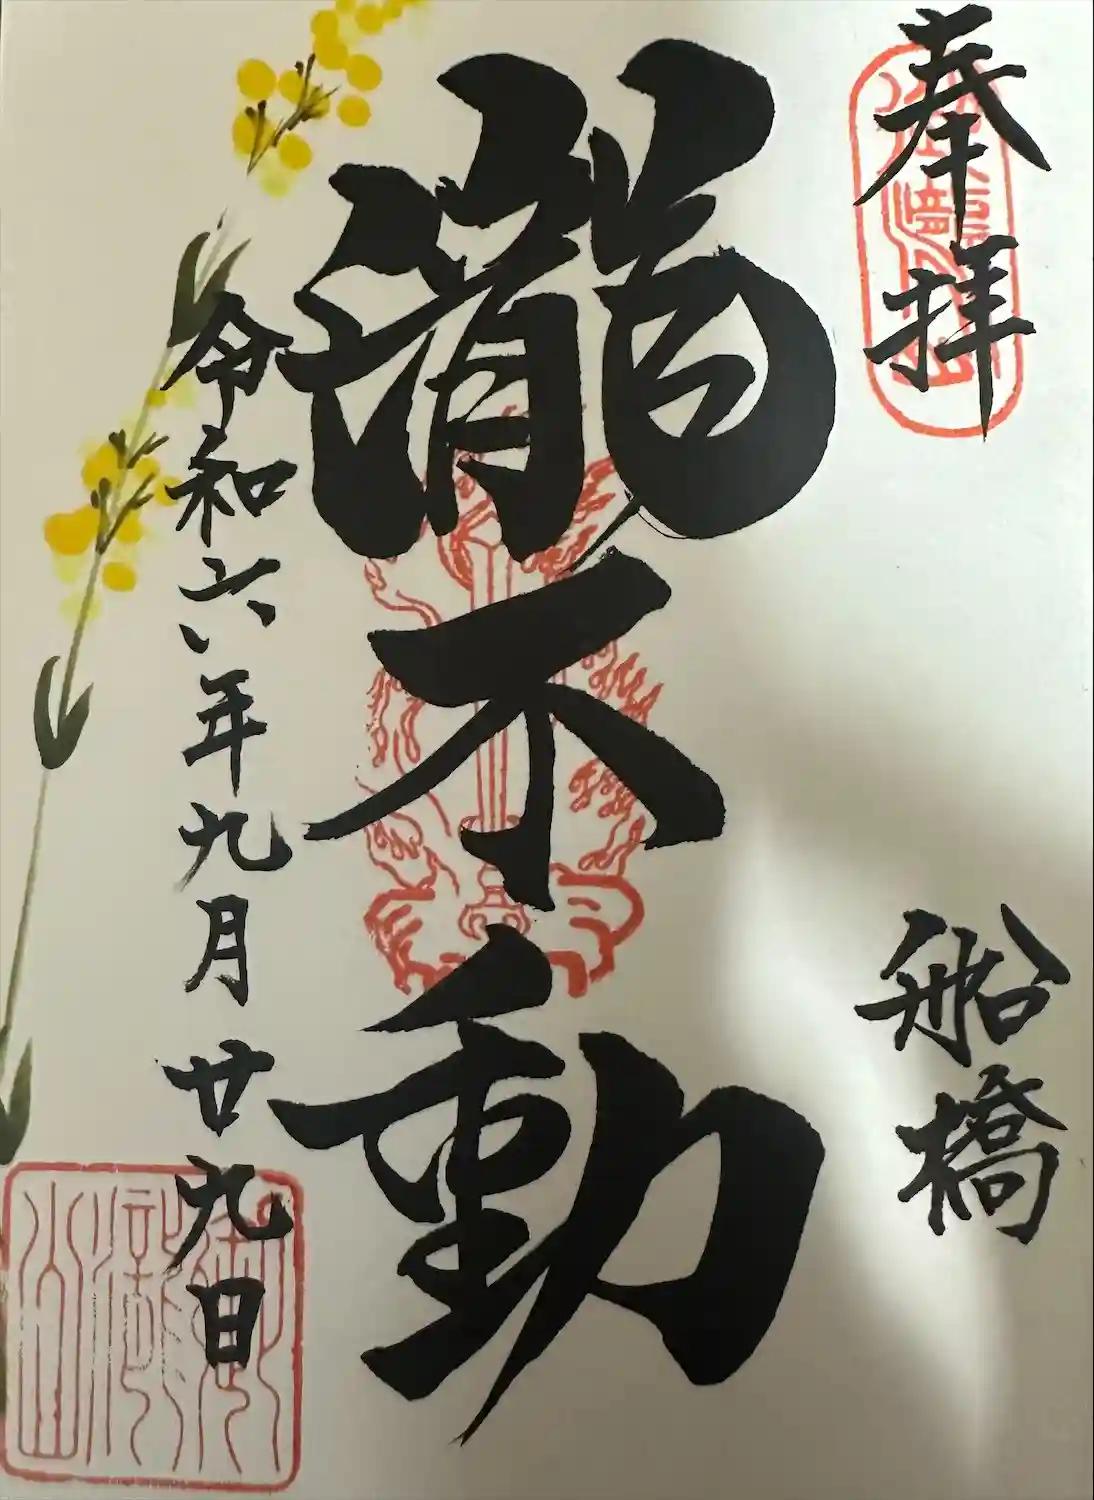 奉拝
船橋
瀧不動
令和六年九月廿九日
御瀧山